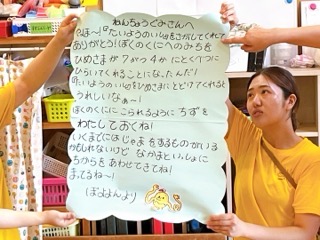 ねんちょうぐみさんへ
やほ〜！『たいようのいし』をさがしてくれて
ありがとう！ぼくのくにへのみちを
ひめさまが 7がつ4か にとくべつに
ひらいてくれることになったんだ！
『たいようのいし』をひめさまにとどけてくれると
うれしいなぁ〜！
ぼくのくににこられるように ちずを
わたしておくね！
いくまでには じゃまをするものがいる
かもしれないけど なかまといっしょに
ちからを あわせてきてね！
まってるね〜！
より